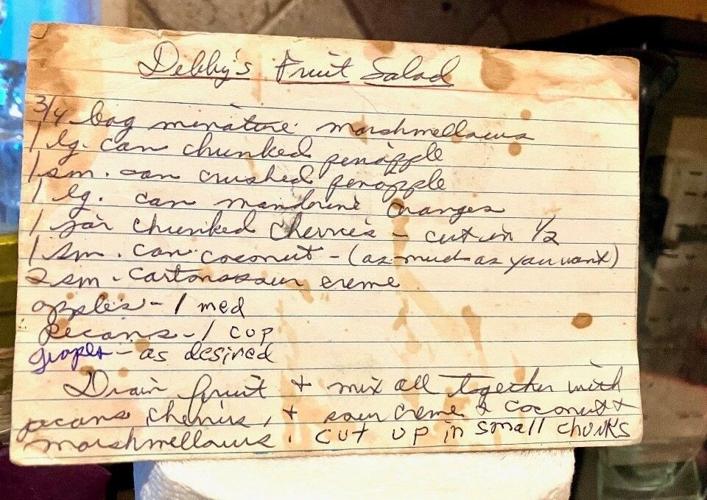 Debby's Fruit Salad
3/4 bag minature marshmellows
1 lg. can chunked penapple
1 sm. can crushed penapple
1 lg. can manderine oranges
1 jar chunked cherries - cut in 1/2
1 sm. can coconut - (as much as you want)
2 sm. cartons sour creme
apples - 1 med
pecans - 1 cup
grapes - as desired
Drain fruit + mix all together with
pecans, cherries, + sour creme + coconut +
marshmellows. cut up in small chunks